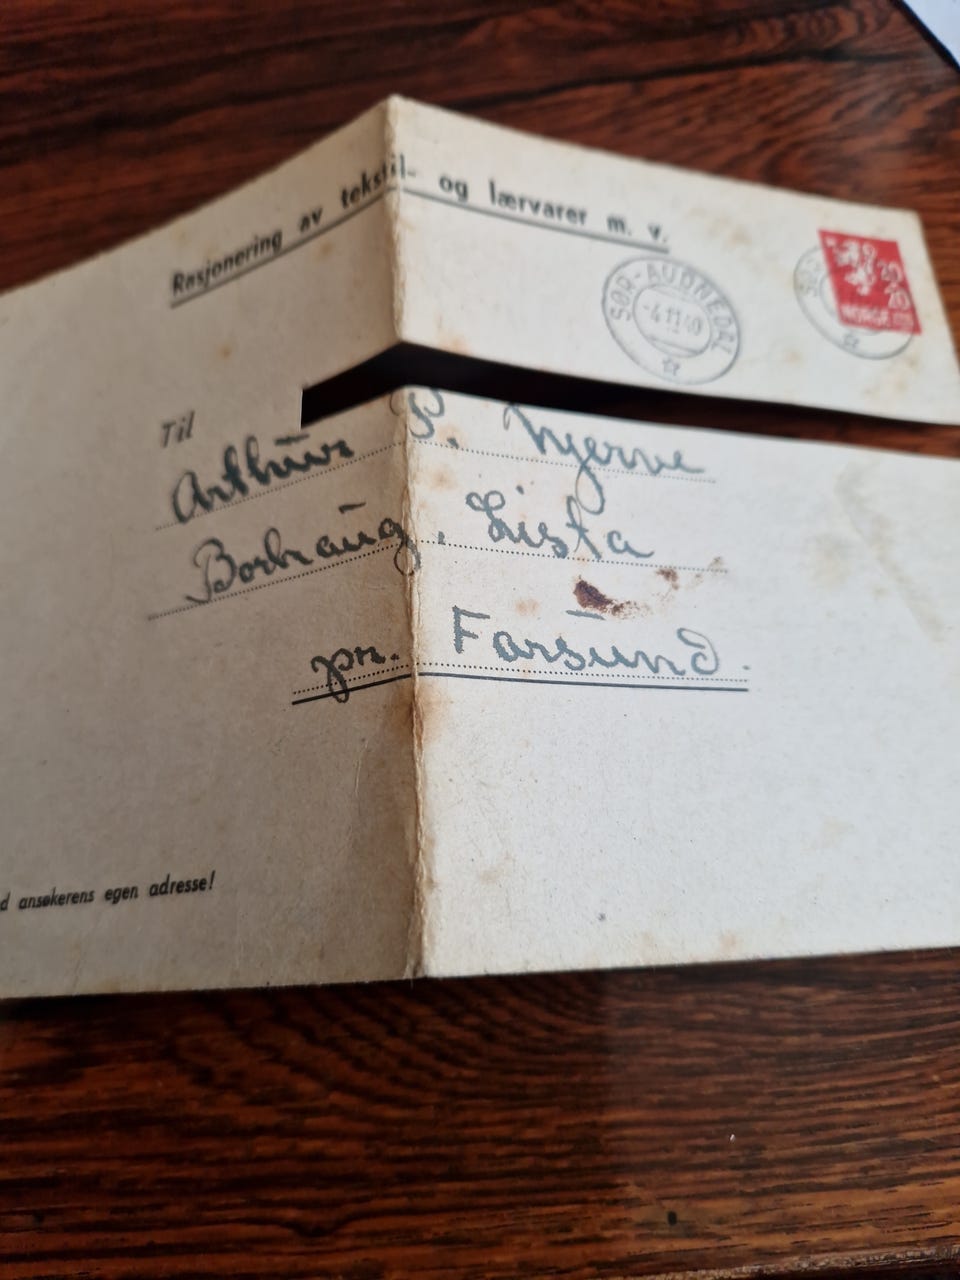 Rasjonering av tekstil- og lærvarer m. v.
SØR-AUDNEDAL
-4.11.40
SØR
20
20
NORGE
Til
Arthur P. Njerve
Borhaug, Lista
pr. Farsund.
d ansøkerens egen adresse!